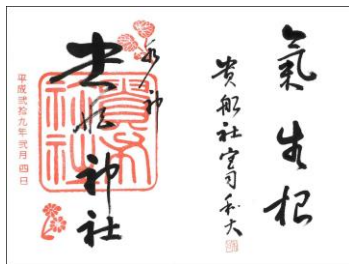 氣生根
貴船社宮司和大
水神
貴船神社
平成弐拾九年 弐月 四日